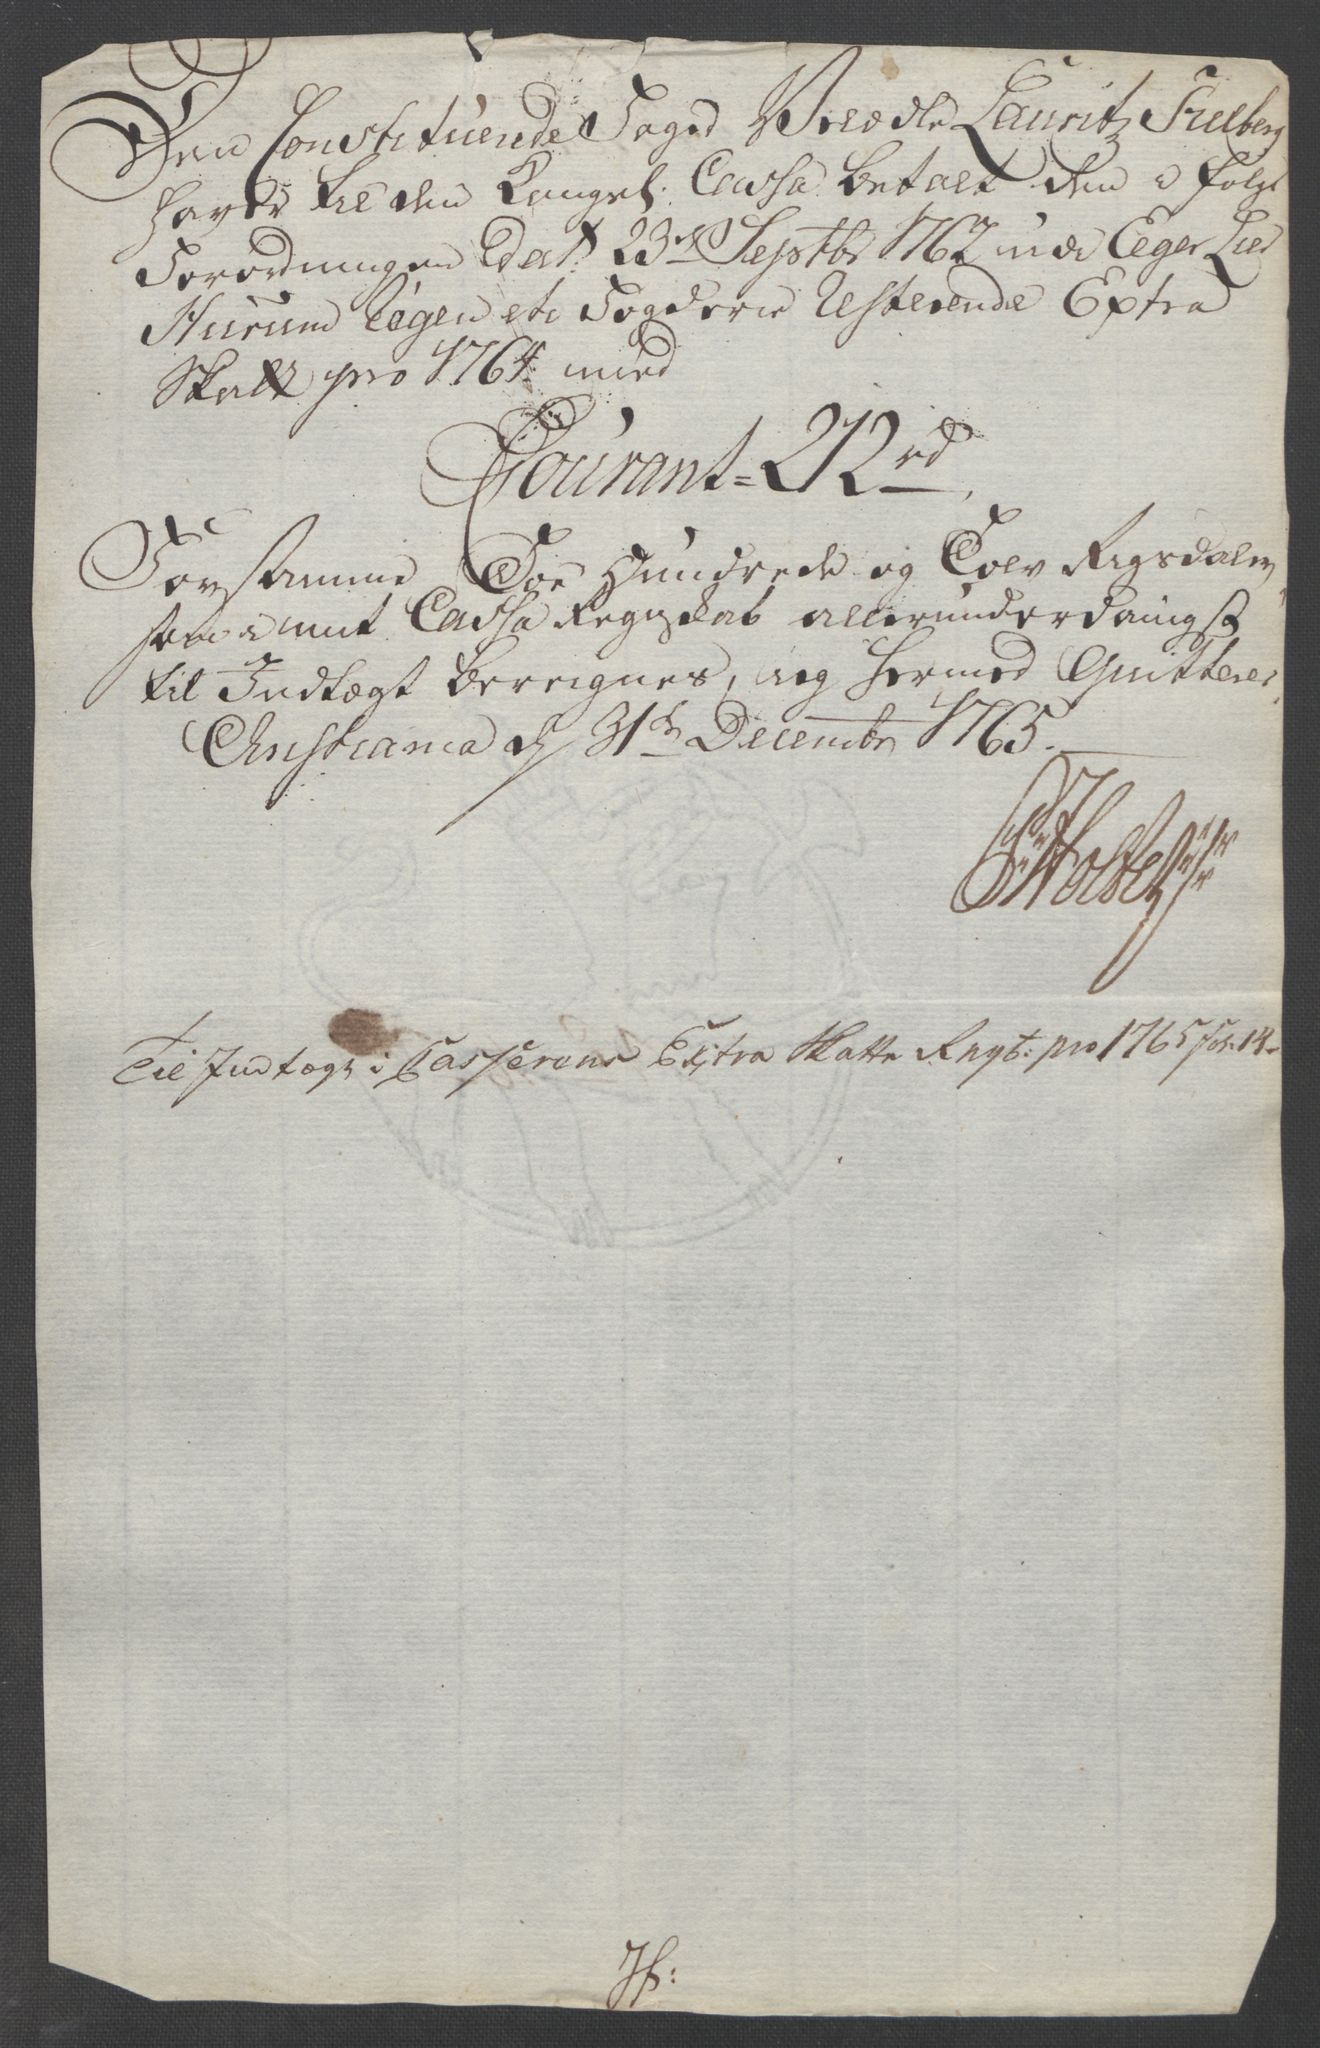 Den Constituerede Foged Velædle Lauritz Fielberg
haver til den Kongel: Cassa betalt den i følge
Forordningen Dat: 23de Septbr 1762 udi Eger Lier
Hurum Eigen etc Fogderie Resterende Extra
Skatt pro 1764 med
Courant = 212 rd
Forstamme Toe Hundrede og Tolv Rigsdaler
som i mit Cassa Regnskab allerunderdanigst
til Indtægt beregnes, ieg hermed Quitterer
Christiania d 31te Decembr 1765.
Holst
Til Indtægt i Casserens Extra Skatte Regsk: pro 1765 Fol: 14